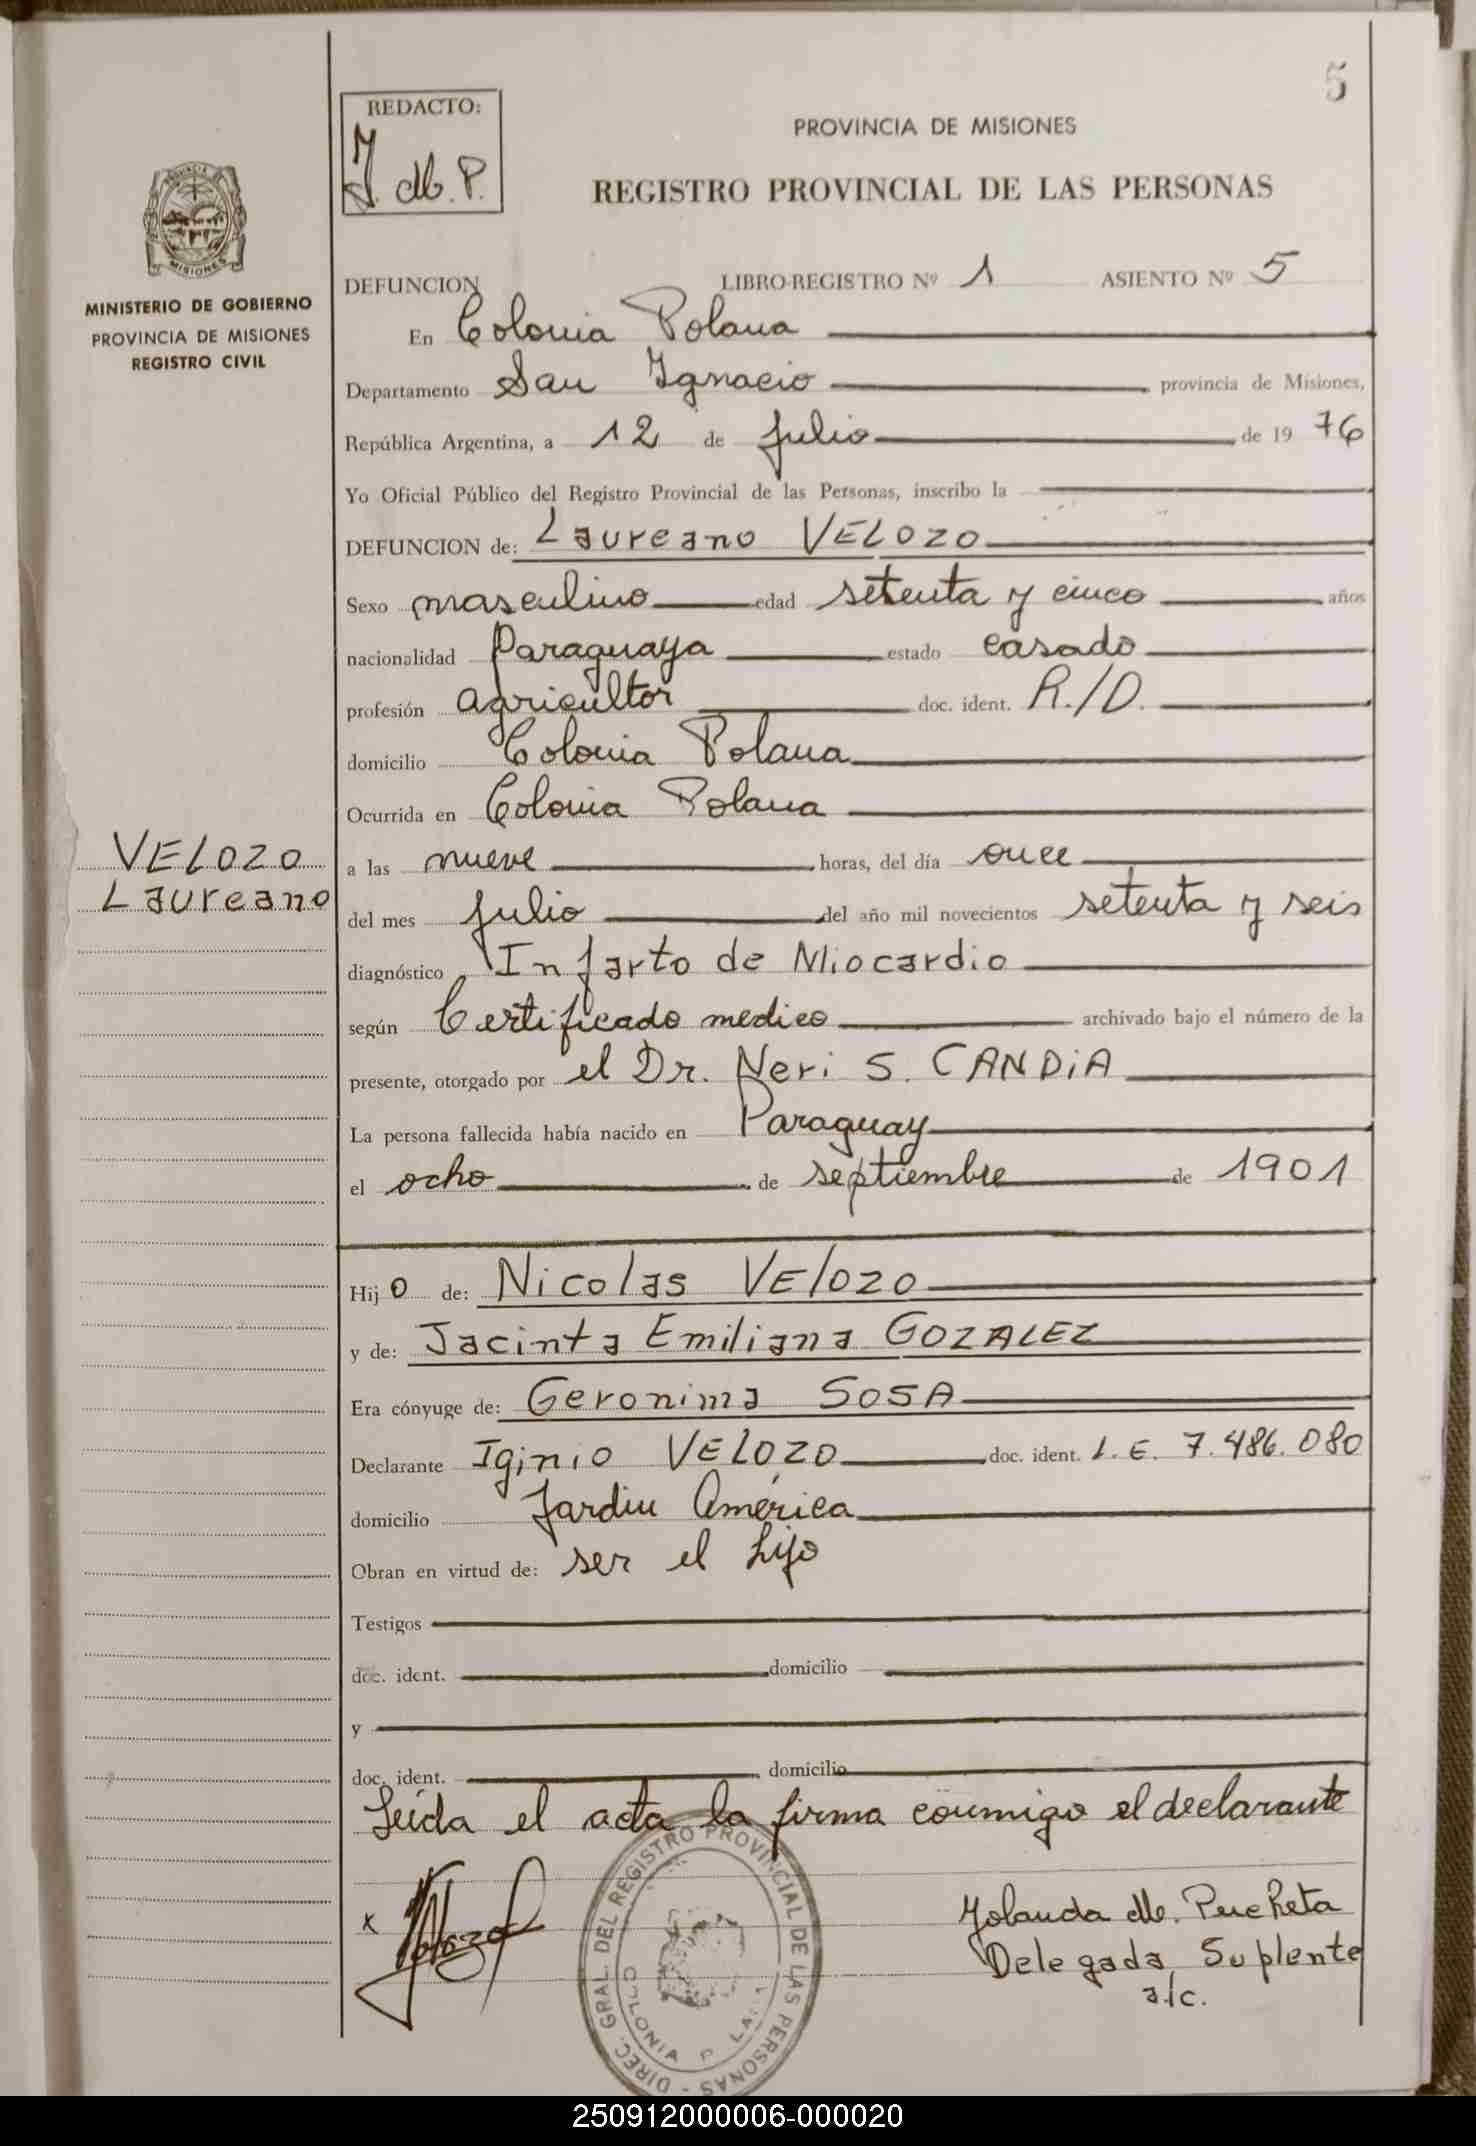 5
REDACTO:
Y. M. P.
PROVINCIA DE MISIONES
REGISTRO PROVINCIAL DE LAS PERSONAS
MISIONES
MINISTERIO DE GOBIERNO
PROVINCIA DE MISIONES
REGISTRO CIVIL
DEFUNCION LIBRO-REGISTRO Nº 1 ASIENTO Nº 5
En Colonia Polana
Departamento San Ignacio provincia de Misiones,
República Argentina, a 12 de julio de 19 76
Yo Oficial Público del Registro Provincial de las Personas, inscribo la
DEFUNCION de: Laureano VELOZO
Sexo masculino edad setenta y cinco años
nacionalidad Paraguaya estado casado
profesión agricultor doc. ident. R./D.
domicilio Colonia Polana
Ocurrida en Colonia Polana
VELOZO
Laureano
a las nueve horas, del día once
del mes julio del año mil novecientos setenta y seis
diagnóstico Infarto de Miocardio
según Certificado medico archivado bajo el número de la
presente, otorgado por el Dr. Neri S. CANDIA
La persona fallecida había nacido en Paraguay
el ocho de septiembre de 1901
Hij o de: Nicolas VElozo
y de: Jacinta Emiliana GOZALEZ
Era cónyuge de: Geronima SOSA
Declarante Iginio VELOZO doc. ident. L.E. 7.486.080
domicilio Jardin América
Obran en virtud de: ser el hijo
Testigos
doc. ident. domicilio
y
doc. ident. domicilio
Leída el acta la firma conmigo el declarante
x
Yolanda M. Pucheta
Delegada Suplente
a/c.
DIREC. GRAL. DEL REGISTRO PROVINCIAL DE LAS PERSONAS -
COLONIA P LA
250912000006-000020